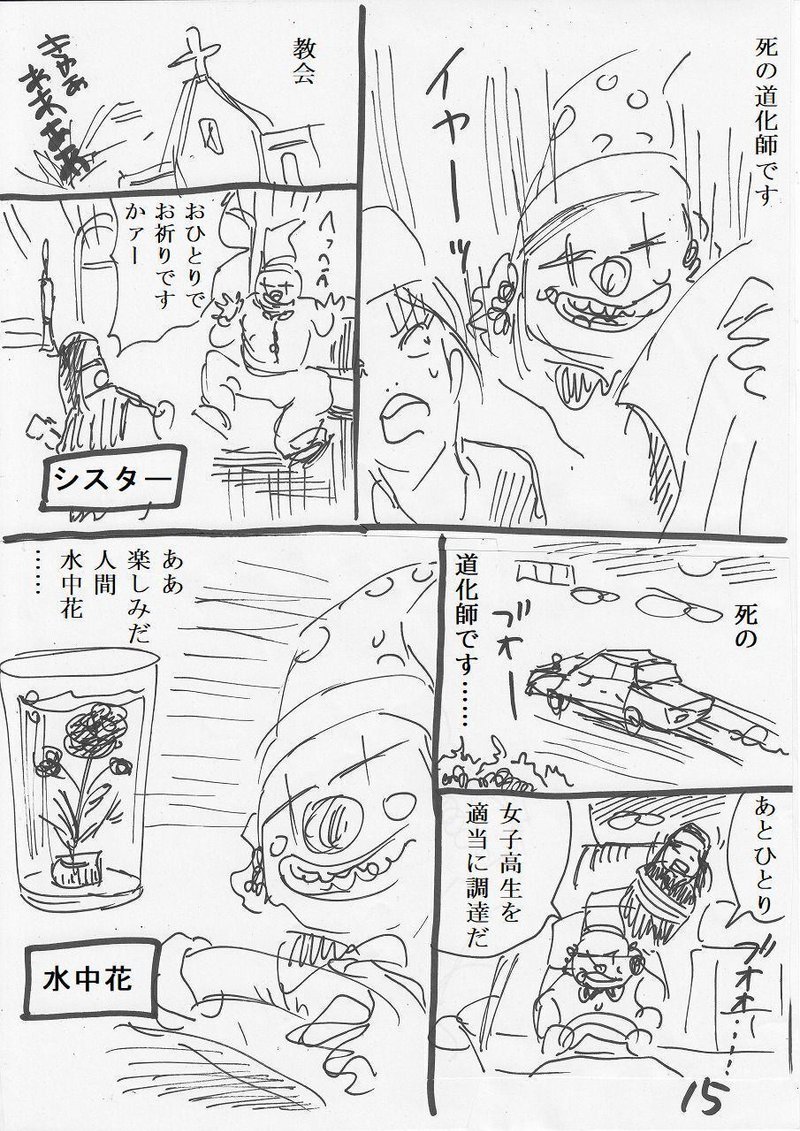 死の道化師です
イヤーッ
教会
きゃあ
ああああ
へっへっへ
おひとりで
お祈りです
かァー
シスター
死の
道化師です……
ブオー
あとひとり
女子高生を
適当に調達だ
ブオオー…‥
ああ
楽しみだ
人間
水中花
……
水中花
15